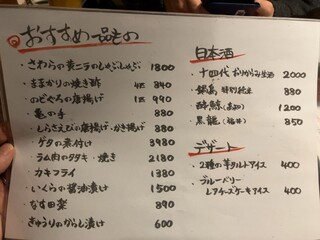 おすすめ一品もの
・さわらの黄ニラのしゃぶしゃぶ 1800
・ままかりの焼き酢 4匹 840
・のどぐろの唐揚げ 1匹 990
・亀の手 880
・しらさえびの唐揚げ・かき揚げ 880
・ゲタの煮付け 3980
・ラム肉のタタキ・焼き 2180
・カキフライ 1380
・いくらの醤油漬け 1500
・なす田楽 890
・きゅうりのからし漬け 600
日本酒
・十四代 おりがらみ生酒 2000
・鍋島 特別純米 880
・酔鯨(高知) 1200
・黒龍(福井) 850
デザート
・2種の芋タルトアイス 400
・ブルーベリー
レアチーズケーキアイス 400